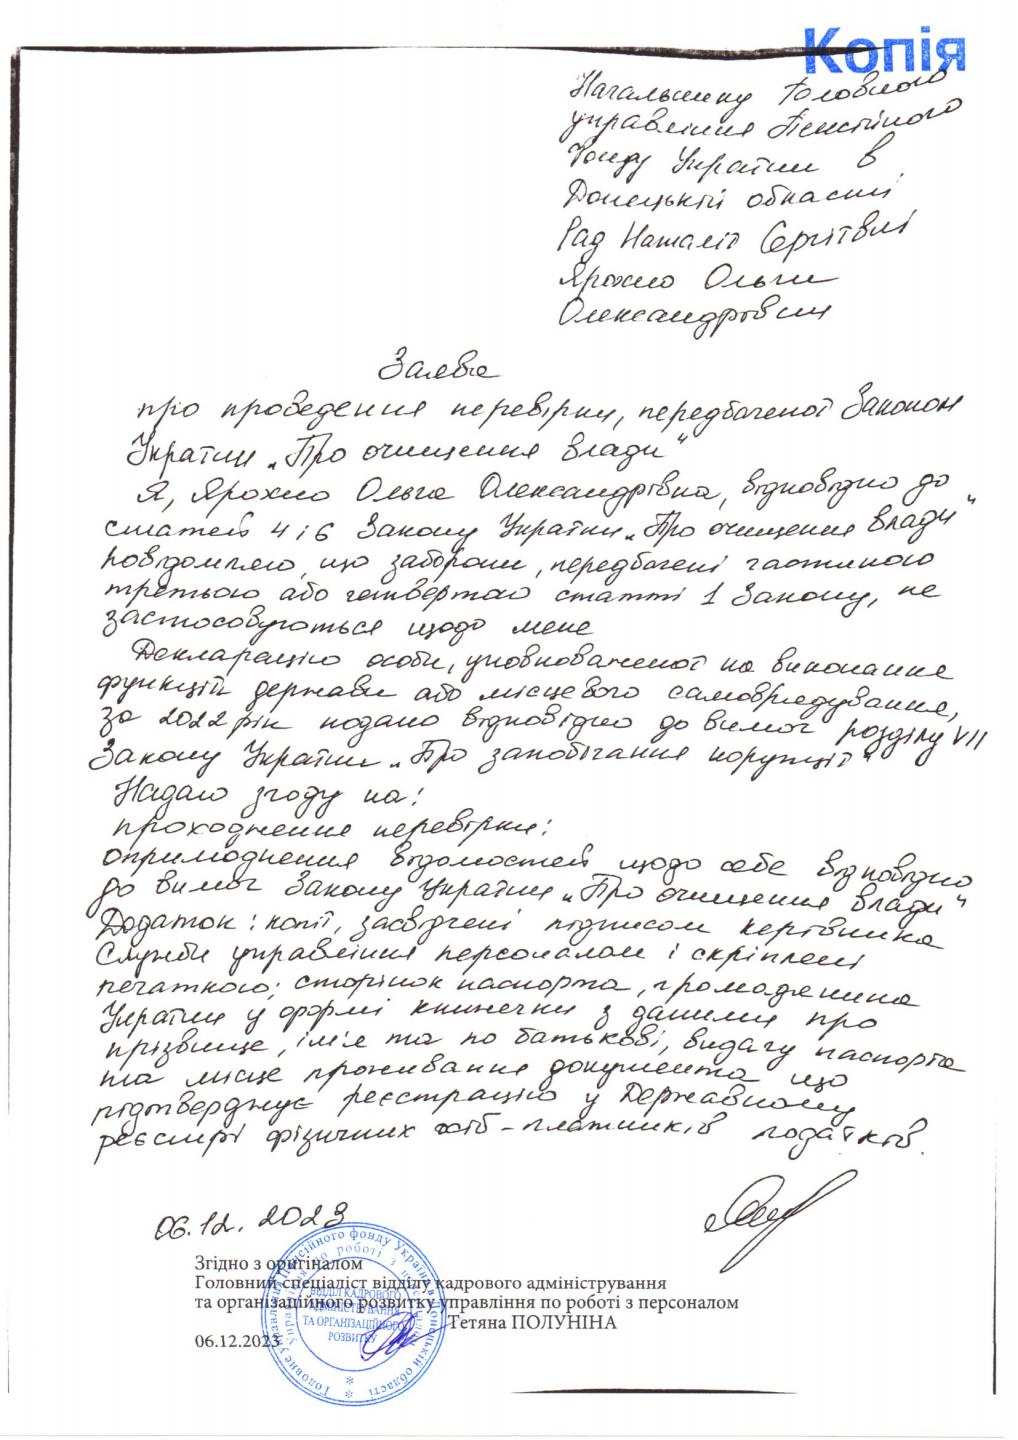 Копія
Начальнику Головного
управління Пенсійного
Фонду України в
Донецькій області
Рад Наталії Сергіївні
Ярохно Ольги
Олександрівни
Заява
про проведення перевірки, передбаченої Законом
України „Про очищення влади"
Я, Ярохно Ольга Олександрівна, відповідно до
статей 4 і 6 Закону України „Про очищення влади"
повідомляю, що заборони, передбачені частиною
третьою або четвертою статті 1 Закону, не
застосовуються щодо мене
Декларацію особи, уповноваженої на виконання
функцій держави або місцевого самоврядування,
за 2022 рік подано відповідно до вимог розділу VII
Закону України „Про запобігання корупції"
Надаю згоду на:
проходження перевірки:
оприлюднення відомостей щодо себе відповідно
до вимог Закону України „Про очищення влади"
Додаток: копії, засвідчені підписом керівника
Служби управління персоналом і скріплені
печаткою: сторінок паспорта, громадянина
України у формі книжечки з даними про
прізвище, ім'я та по батькові, видачу паспорта
та місце проживання документа що
підтверджує реєстрацію у Державному
реєстрі фізичних осіб-платників податків.
06.12.2023
Згідно з оригіналом
Головний спеціаліст відділу кадрового адміністрування
та організаційного розвитку управління по роботі з персоналом
Тетяна ПОЛУНІНА
06.12.2023
Головне управління Пенсійного фонду України в Донецькій області
Управління по роботі з персоналом
ВІДДІЛ КАДРОВОГО
АДМІНІСТРУВАННЯ
ТА ОРГАНІЗАЦІЙНОГО
РОЗВИТКУ